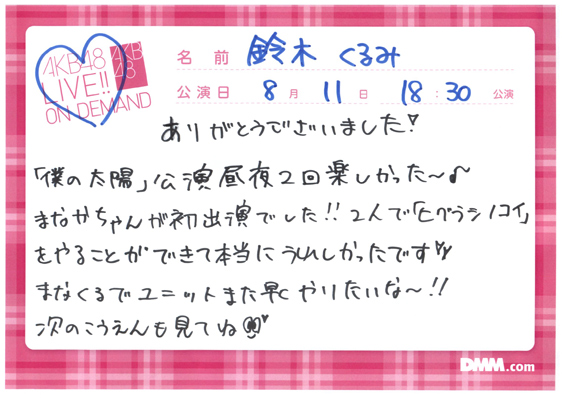 AKB48
LIVE!!
ON DEMAND
AKB
48
名前 鈴木 くるみ
公演日 8月 11日 18:30 公演
ありがとうございました!
「僕の太陽」公演昼夜2回楽しかった〜♪
まなかちゃんが初出演でした!!2人で「ヒグラシノコイ」
をやることができて本当にうれしかったです
まなくるでユニットまた早くやりたいな〜!!
次のこうえんも見てね
DMM.com